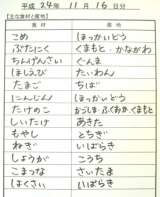 平成 24年 11月 16日分
【主な食材と産地】
食材 産地
こめ ほっかいどう
ぶたにく くまもと・かながわ
ちんげんさい ぐんま
ほしえび たいわん
たまご ちば
にんじん ほっかいどう
たけのこ かごしま ふくおか くまもと
しいたけ あきた
もやし とちぎ
ねぎ いばらき
しょうが こうち
こまつな さいたま
はくさい いばらき